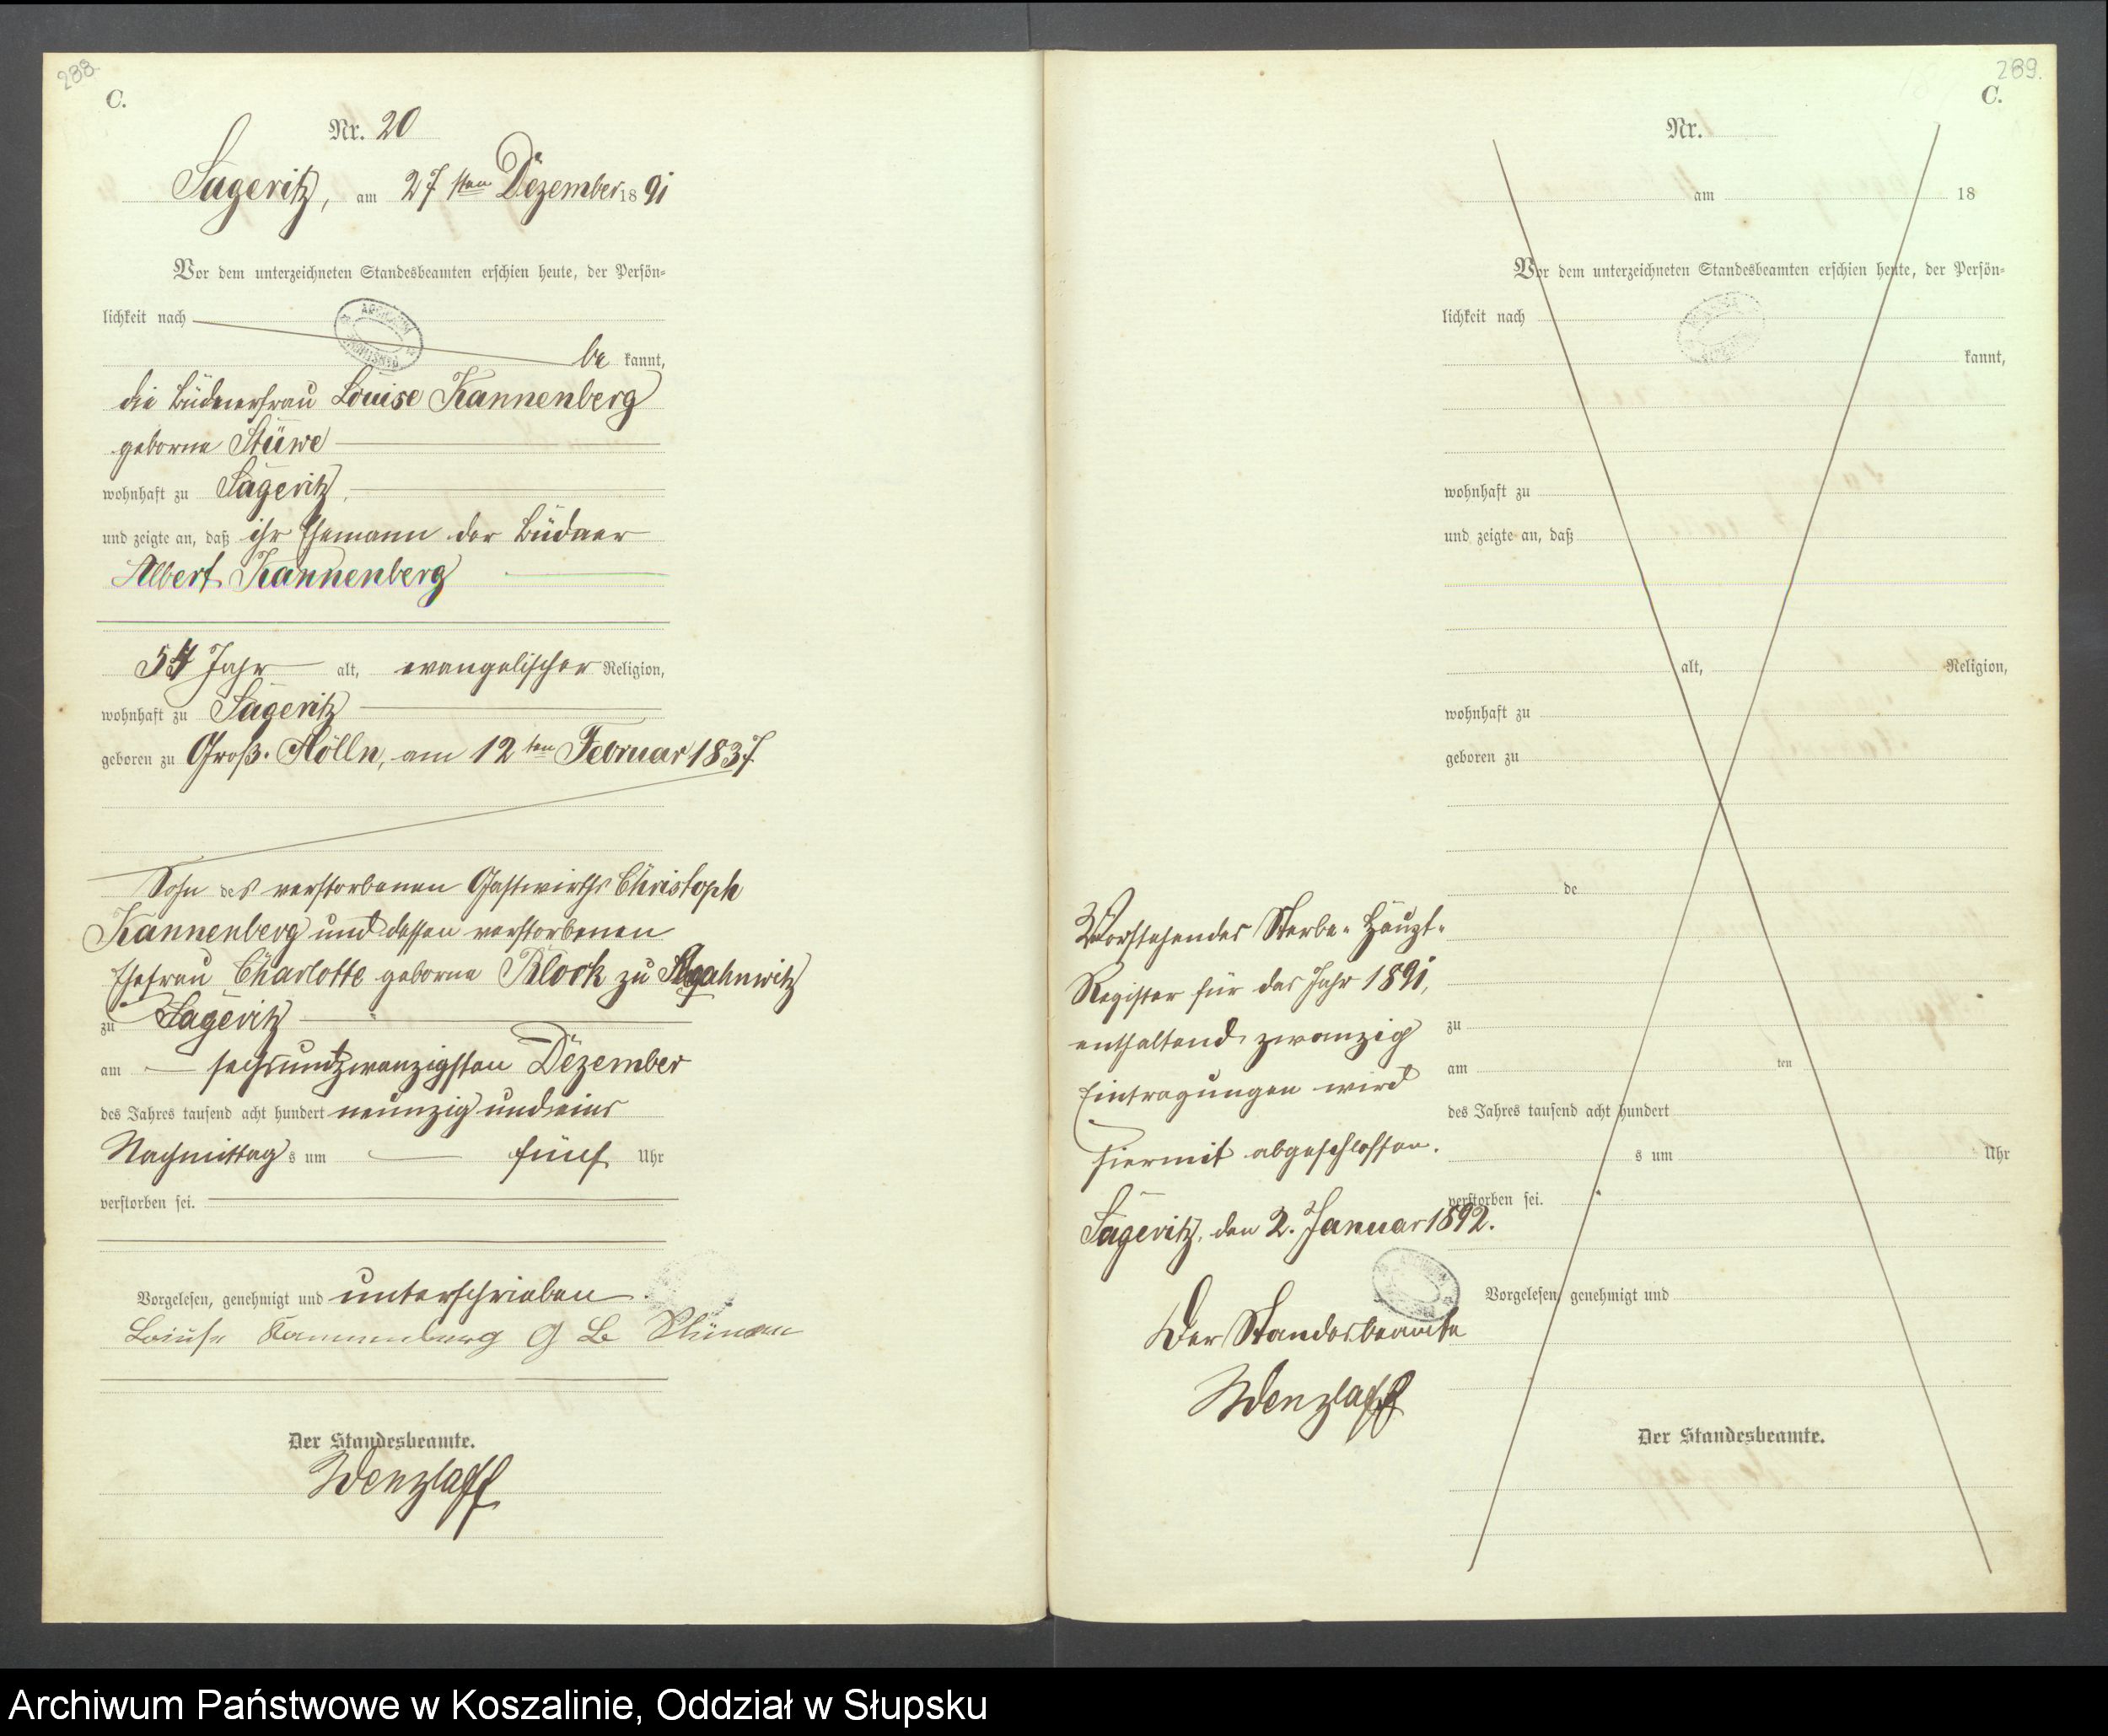 288.
C.
Nr. 20
Sageritz, am 27 sten Dezember 18 91
Vor dem unterzeichneten Standesbeamten erschien heute, der Persön-
lichkeit nach
be kannt,
die Büdnerfrau Louise Kannenberg
geborne Stüwe
wohnhaft zu Sageritz,
und zeigte an, daß ihr Ehemann der Büdner
Albert Kannenberg
54 Jahr alt, evangelischer Religion,
wohnhaft zu Sageritz
geboren zu Groß. Nölln, am 12ten Februar 1837
Sohn des verstorbenen Gastwirths Christoph
Kannenberg und dessen verstorbenen
Ehefrau Charlotte geborne Block zu
zu Sageritz
am sechsundzwanzigsten Dezember
des Jahres tausend acht hundert neunzig und eins
Nachmittag s um fünf Uhr
verstorben sei.
Vorgelesen, genehmigt und unterschrieben.
Louise Kannenberg
Der Standesbeamte.
Wenzlaff
289.
C.
Nr.
am 18
Vor dem unterzeichneten Standesbeamten erschien heute, der Persön-
lichkeit nach
kannt,
wohnhaft zu
und zeigte an, daß
alt, Religion,
wohnhaft zu
geboren zu
de
zu
am ten
des Jahres tausend acht hundert
s um Uhr
verstorben sei.
Vorgelesen, genehmigt und
Der Standesbeamte.
Vorstehendes Sterbe-Haupt-
Register für das Jahr 1891,
enthaltend zwanzig
Eintragungen wird
hiermit abgeschlossen.
Sageritz, den 2. Januar 1892.
Der Standesbeamte
Wenzlaff
Archiwum Państwowe w Koszalinie, Oddział w Słupsku